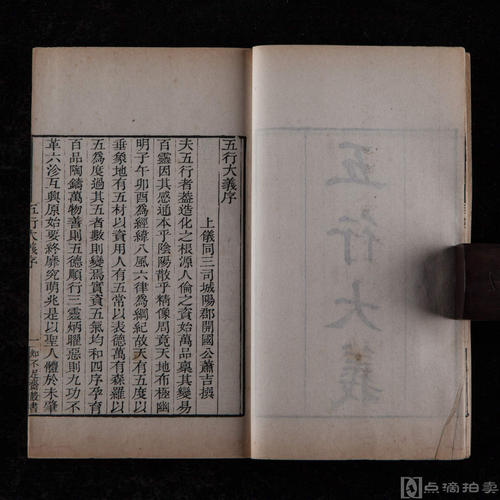 五行大義
五行大義序
上儀同三司城陽郡開國公蕭吉撰
夫五行者蓋造化之根源人倫之資始萬品稟其變易
百靈因其感通本乎陰陽散乎精像周竟天地布極幽
明子午卯酉為經緯八風六律為綱紀故天有五度以
垂象地有五材以資用人有五常以表德萬有森羅以
五為度過其五者數則變焉實資五氣均和四序孕育
百品陶鑄萬物善則五德順行三靈炳曜惡則九功不
革六沴互興原始要終靡究萌兆是以聖人體於未肇
五行大義序
一
知不足齋叢書
点滴拍卖